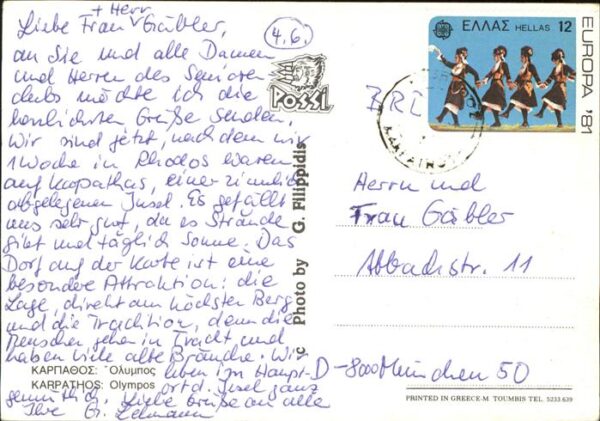 + Herr
Liebe Frau Gäbler,
an Sie und alle Damen
und Herren des Senioren-
clubs möchte ich die
herzlichsten Grüße senden.
Wir sind jetzt, nachdem wir
1 Woche in Rhodos waren
auf Karpathos, einer ziemlich
abgelegenen Insel. Es gefällt
uns sehr gut, da es Strände
gibt und täglich Sonne. Das
Dorf auf der Karte ist eine
besondere Attraktion: die
Lage, direkt am höchsten Berg
und die Tradition, denn die
Menschen gehen in Tracht und
haben viele alte Bräuche. Wir
leben im Haupt-
ort d. Insel ganz
gemütlich. Liebe Grüße an alle
Ihre G. Lehmann
ΚΑΡΠΑΘΟΣ: Ὄλυμπος
KARPATHOS: Olympos
(4.6.)
POSSI
c Photo by G. Filippidis
ΕΛΛΑΣ HELLAS 12
EUROPA '81
BRD
Herrn und
Frau Gäbler
Abbachstr. 11
D-8000 München 50
PRINTED IN GREECE-M TOUMBIS TEL. 5233.639